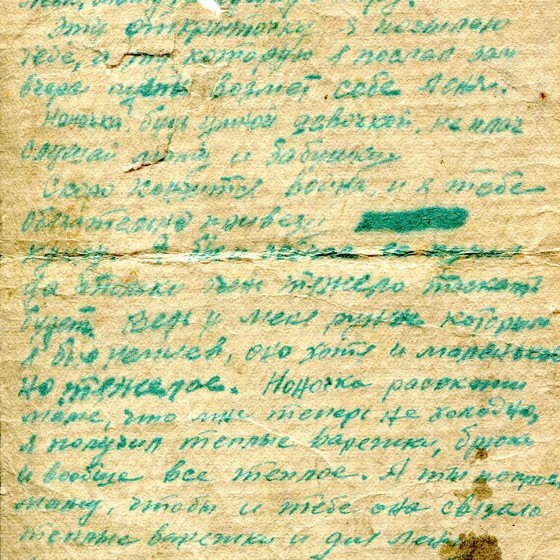 Эту открыточку я посылаю
тебе, а ту которую я послал вам
вчера пусть возмет себе Леня.
Ноночка, будь умной девочкой, не плач
слушай маму и бабушку.
Скоро кончится война, и я тебе
обязательно привезу
куклу. Я бы и сейчас
да только очень тяжело таскать
будет ведь у меня ружье которым
я бью немцев, оно хотя и маленькое
но тяжелое. Ноночка расскажи
маме, что мне теперь не холодно,
я получил теплые варешки, брюки
и вообще все теплое. А ты попроси
маму, чтобы и тебе она связала
теплые варешки и для Лени